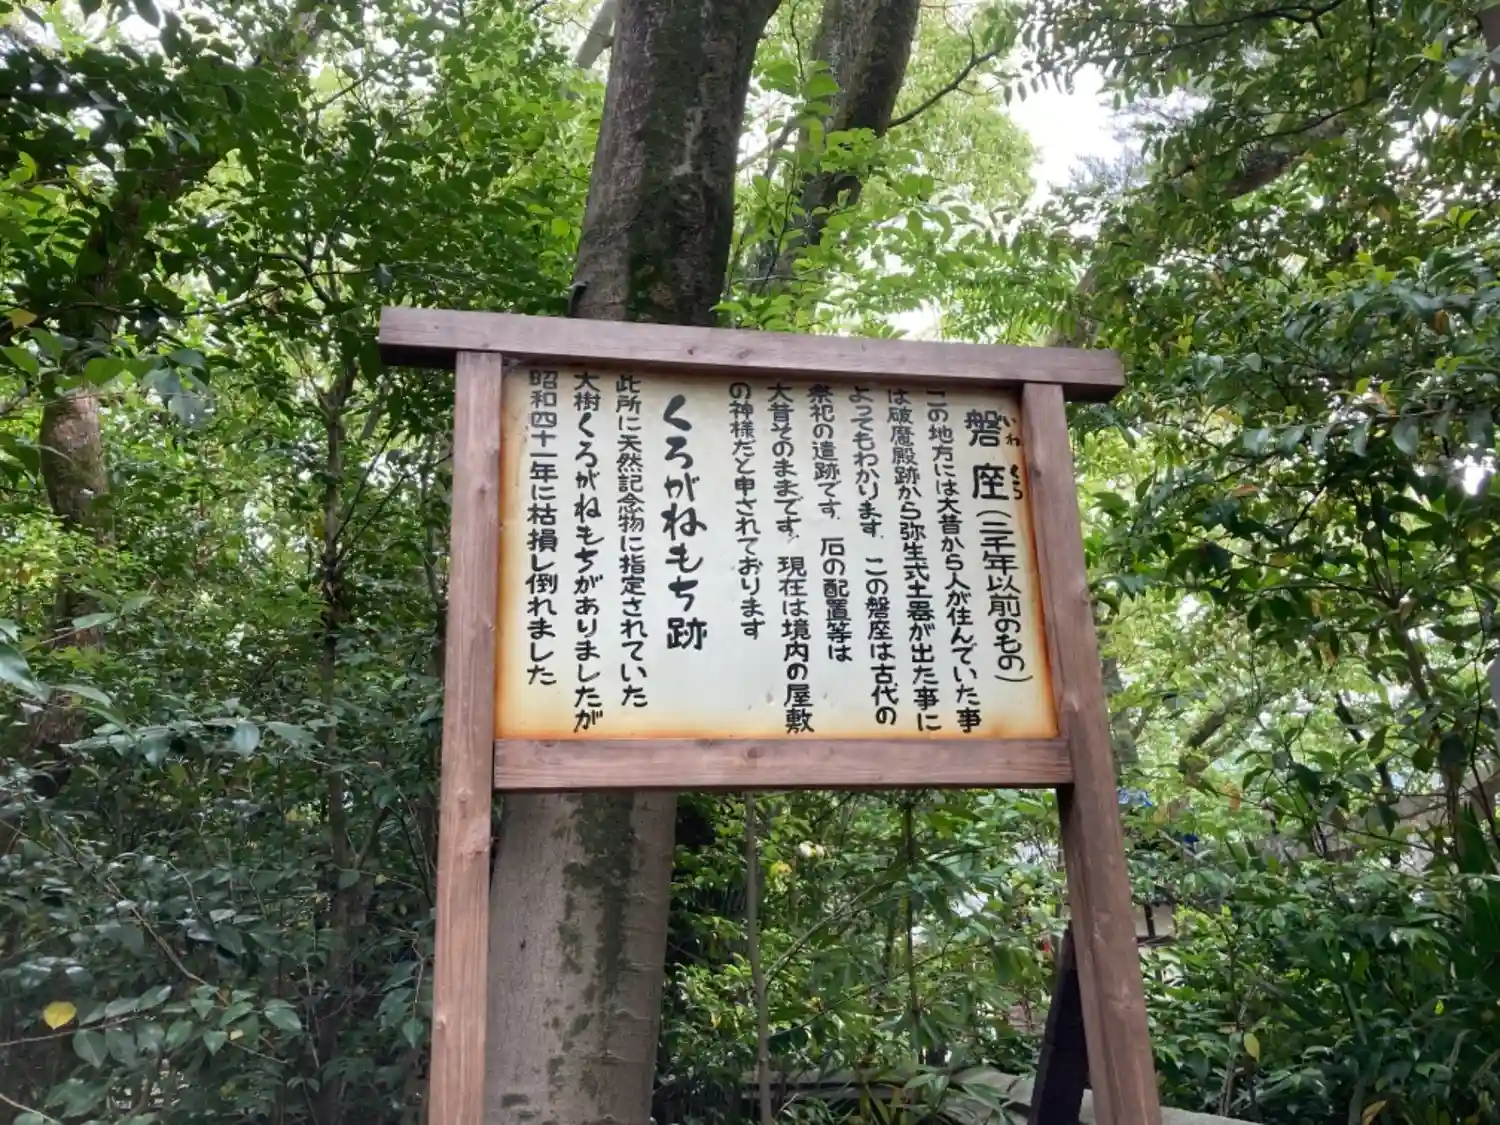 磐座(三千年以前のもの)
いわくら
この地方には大昔から人が住んでいた事
は破魔殿跡から弥生式土器が出た事に
よってもわかります.この磐座は古代の
祭祀の遺跡です.石の配置等は
大昔そのままです.現在は境内の屋敷
の神様だと申されております
くろがねもち跡
此所に天然記念物に指定されていた
大樹くろがねもちがありましたが
昭和四十一年に枯損し倒れました